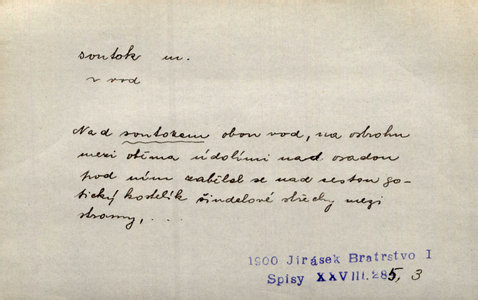 soutok m.
~ vod
Nad soutokem obou vod, na ostrohu
mezi oběma údolími nad osadou
pod ním zabělel se nad cestou go-
tický kostelík šindelové střechy mezi
stromy, . . .
1900 Jirásek Bratrstvo I
Spisy XXVIII.285, 3